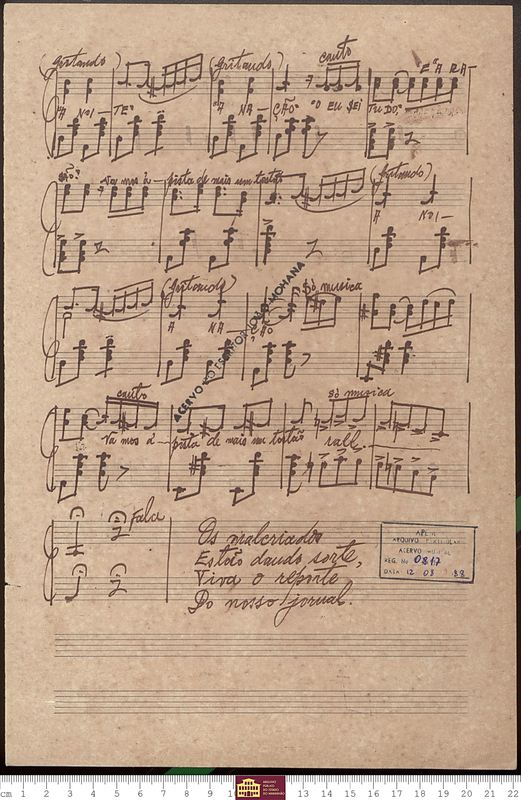 (Gritando) (Gritando) canto
"E "A RA-
"A NOI-TE" "A NA-ÇÃO" "O EU SEI TUDO,"
SÃO" Va mos à - pista de mais um tostão (Gritando)
A NOI-
(Gritando) Só musica
A NA-ÇÃO
canto Só musica
Va mos à - pista de mais um tostão rall.
Fala
Os malcriados
Estão dando sorte,
Viva o reporte
Do nosso jornal.
ACERVO JOÃO MOHANA
APEM
ARQUIVO PARTICULAR
ACERVO MUSICAL
REG. No 0817
DATA 12 03 88
cm 1 2 3 4 5 6 7 8 9 10 13 14 15 16 17 18 19 20 21 22
ARQUIVO
PÚBLICO
DO ESTADO
DO MARANHÃO